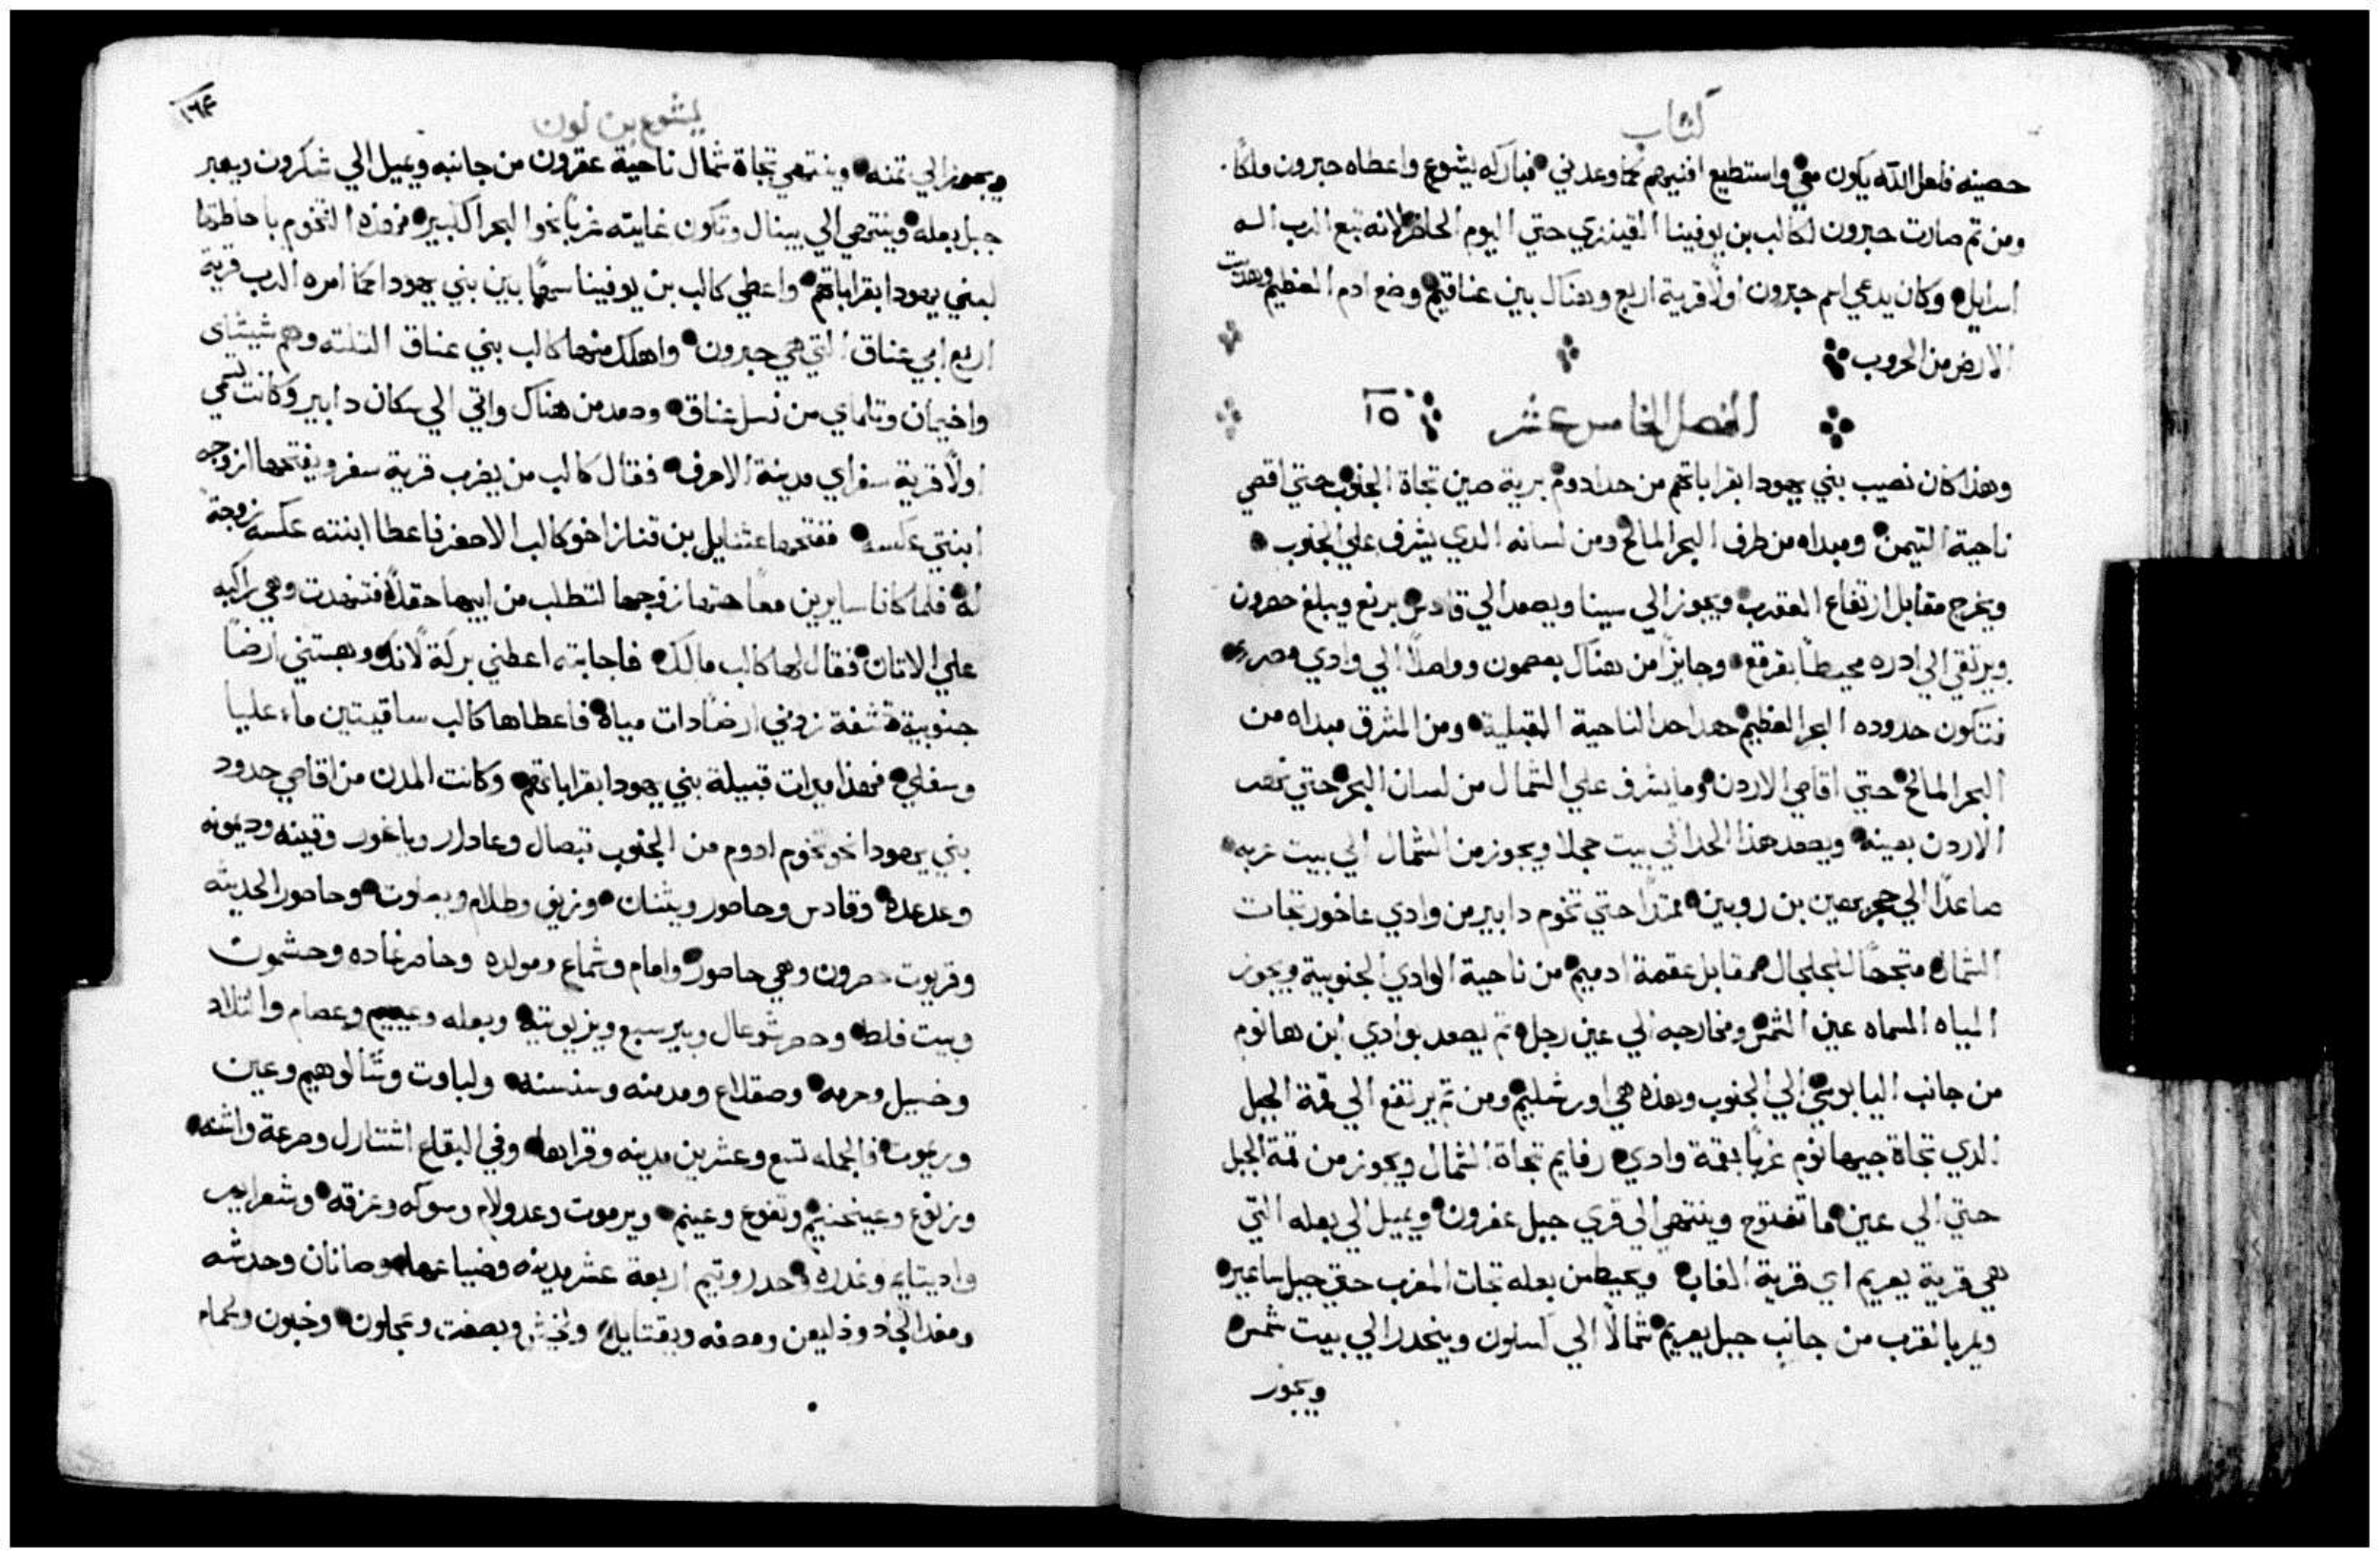 كتاب
حصينه فلعل الله يكون معي واستطيع افنيهم كما وعدني فباركه يشوع واعطاه حبرون ملكًا
ومن تم صارت حبرون لكالب بن يوفينا القينزي حتي اليوم الحاضر لانه تبع الرب اله
اسرايل وكان يدعي اسم حبرون اولًا قرية اربع وهناك بين عناقيم وضع ادم العظيم وهدت
الارض من الحروب
الفصل الخامس عشر ١٥
وهذا كان نصيب بني يهودا بقراباتهم من حد ادوم برية صين تجاة الجنوب حتي اقصي
ناحية التيمن ومبداه من طرف البحر المالح ومن لسانه الدي يشرف علي الجنوب
ويخرج مقابل ارتفاع العقرب ويجوز الي سينا ويصعد الي قادس برنع ويبلغ حصرون
ويرتقي الي ادره محيطًا بقرقع وجايزًا من هناك بعصمون وواصلًا الي وادي مصر
فتكون حدوده البحر العظيم هدا حد الناحية القبلية ومن المشرق مبداه من
البحر المالح حتي اقاصي الاردن وما يشرف علي الشمال من لسان البحر حتي نهر
الاردن بعينه ويصعد هذا الحد الي بيت حجلا ويجوز من الشمال الي بيت عربه
صاعدًا الي حجر بعين بن روبين ممتدًا حتي تخوم دابير من وادي عاخور تجات
الشمال متجهًا للجلجال مقابل عقمة ادميم من ناحية الوادي الجنوبية ويجوز
المياه المسماه عين الشمس ومخارجه الي عين رجل تم يصعد بوادي ابن هانوم
من جانب اليابوسي الي الجنوب وهذه هي اورشليم ومن تم يرتفع الي قمة الجبل
الدي تجاة جيهانوم غربًا بقمة وادي رفايم تجاة الشمال ويجوز من قمة الجبل
حتي الي عين ما تفتوح وينتهي الي قري جبل عفرون ويميل الي بعله التي
هي قرية يعريم اي قرية الغاب ويحيط من بعله تجات المغرب حتي جبل ساعير
ويمر بالقرب من جانب جبل يعريم شمالًا الي كسلون وينحدر الي بيت شمس
ويجوز
يشوع بن نون
١٦٤
ويجوز الي تمنه وينتهي تجاة شمال ناحية عقرون من جانبه ويميل الي شكرون ويعبر
جبل بعله وينتهي الي يبنال وتكون غايته غربًا نحو البحر الكبير فهذه التخوم باحاطتها
لبني يهودا بقراباتهم واعطي كالب بن يوفينا سهمًا بين بني يهودا كما امره الرب قرية
اربع ابي عناق التي هي حبرون واهلك منها كالب بني عناق التلته وهم شيشاي
واخيمان وتلماي من نسل عناق وصعد من هناك واتي الي سكان دابير وكانت تسمي
اولًا قرية سفر اي مدينة الاحرف فقال كالب من يضرب قرية سفر ويفتحها ازوجه
ابنتي عكسه ففتحها عثنايل بن قناز اخو كالب الاصغر فاعطا ابنته عكسه زوجة
له فلما كانا سايرين معًا حتها زوجها لتطلب من ابيها حقلًا فتنهدت وهي راكبه
علي الاتان فقال لها كالب مالك فاجابته اعطني بركة لانك وهبتني ارضًا
جنوبية قشفة زدني ارضًا دات مياة فاعطاها كالب ساقيتين ماء عليا
وسفلي فهذا ميرات قبيلة بني يهودا بقراباتهم وكانت المدن من اقاصي حدود
بني يهودا نحو تخوم ادوم من الجنوب قبصال وعادار وياغور وقينه وديمونه
وعدعده وقادس وحاصور ويثنان وزيف وطلام وبعلوت وحاصور الحديثه
وقريوت حصرون وهي حاصور وامام وشماع ومولده وحاصر غاده وحشمون
وبيت فلط وحصر شوعال وبير سبع ويزيوتيه وبعله وعييم وعصام والتلاد
وخسيل وحرمه وصقلاع ومدمنه وسنسنه ولباوت وشالوهيم وعين
وريموت فالجمله تسع وعشرين مدينه وقراها وفي البقاع اشتارل وصرعة واشنه
وزنوع وعينجنيم وتفوح وعينم ويرموت وعدولام وسوكه وعزقه وشعرايم
واديتايم وغدره وحدروتيم اربعة عشر مدينه وضياعها وصانان وحدشه
ومغدالجاد ودليعن ومصفه ويقتايل ولخيش وبصقت وعجلون وخبون ولحمام